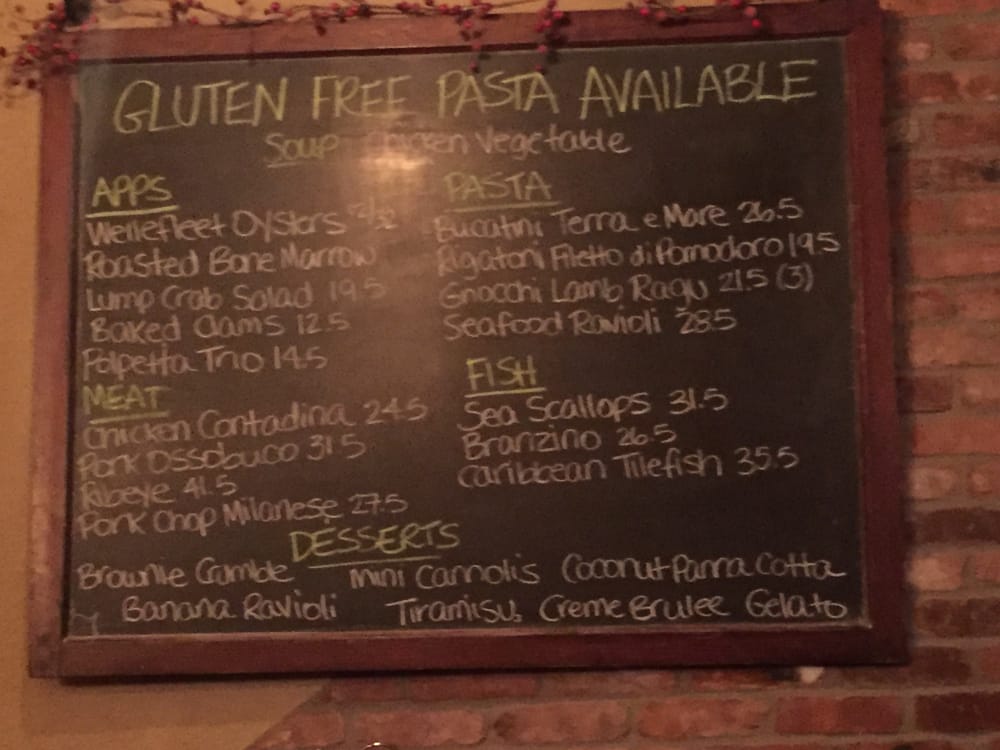 GLUTEN FREE PASTA AVAILABLE
Soup Chicken Vegetable
APPS
Wellefleet Oysters
Roasted Bone Marrow
Lump Crab Salad 19.5
Baked Clams 12.5
Polpetta Trio 14.5
MEAT
Chicken Contadina 24.5
Pork Ossobuco 31.5
Ribeye 41.5
Pork Chop Milanese 27.5
PASTA
Bucatini Terra e Mare 26.5
Rigatoni Filetto di Pomodoro 19.5
Gnocchi Lamb Ragu 21.5 (3)
Seafood Ravioli 28.5
FISH
Sea Scallops 31.5
Branzino 26.5
Caribbean Tilefish 35.5
DESSERTS
Brownie Crumble Mini Cannolis Coconut Panna Cotta
Banana Ravioli Tiramisu Creme Brulee Gelato